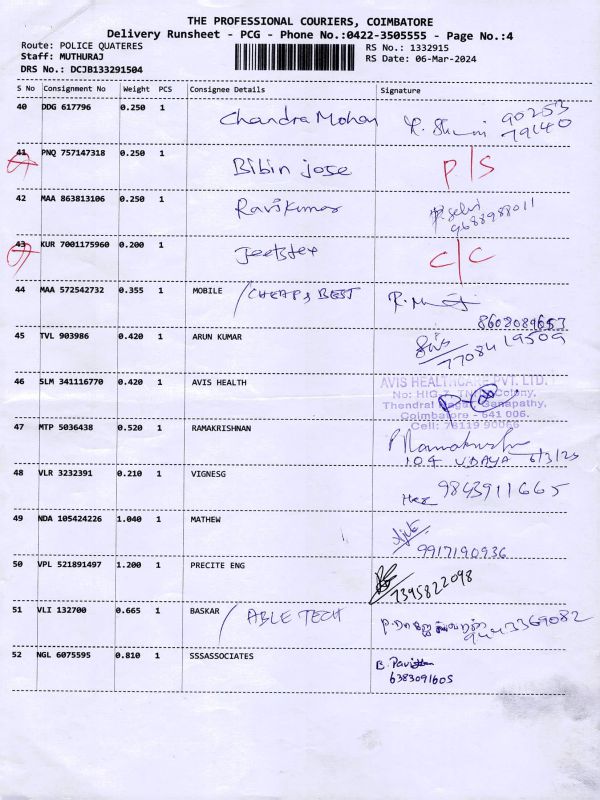 THE PROFESSIONAL COURIERS, COIMBATORE
Delivery Runsheet - PCG - Phone No.:0422-3505555 - Page No.:4
Route: POLICE QUATERES
RS No.: 1332915
Staff: MUTHURAJ
RS Date: 06-Mar-2024
DRS No.: DCJB133291504
S No Consignment No Weight PCS Consignee Details Signature
40 DDG 617796 0.250 1 Chandra Mohan 90253
79140
41 PNQ 757147318 0.250 1 Bibin jose P/S
42 MAA 863813106 0.250 1 Ravikumar P. Selvi
9688988011
43 KUR 7001175960 0.200 1 C/C
44 MAA 572542732 0.355 1 MOBILE / CHEAP & BEST
8608089653
45 TVL 903986 0.420 1 ARUN KUMAR
7708419509
46 SLM 341116770 0.420 1 AVIS HEALTH AVIS HEALTHCARE PVT. LTD.
No: HIG-7, TNHB Colony,
Thendral Nagar, Ganapathy,
Coimbatore - 641 006.
Cell: 78119 90066
47 MTP 5036438 0.520 1 RAMAKRISHNAN P Ramakrishn
104 UDAYA 6/3/25
48 VLR 3232391 0.210 1 VIGNESG 9843911665
49 NDA 105424226 1.040 1 MATHEW
9917190936
50 VPL 521891497 1.200 1 PRECITE ENG
7395822098
51 VLI 132700 0.665 1 BASKAR / ABLE TECH
9443369082
52 NGL 6075595 0.810 1 SSSASSOCIATES B. Pavithra
6383091605